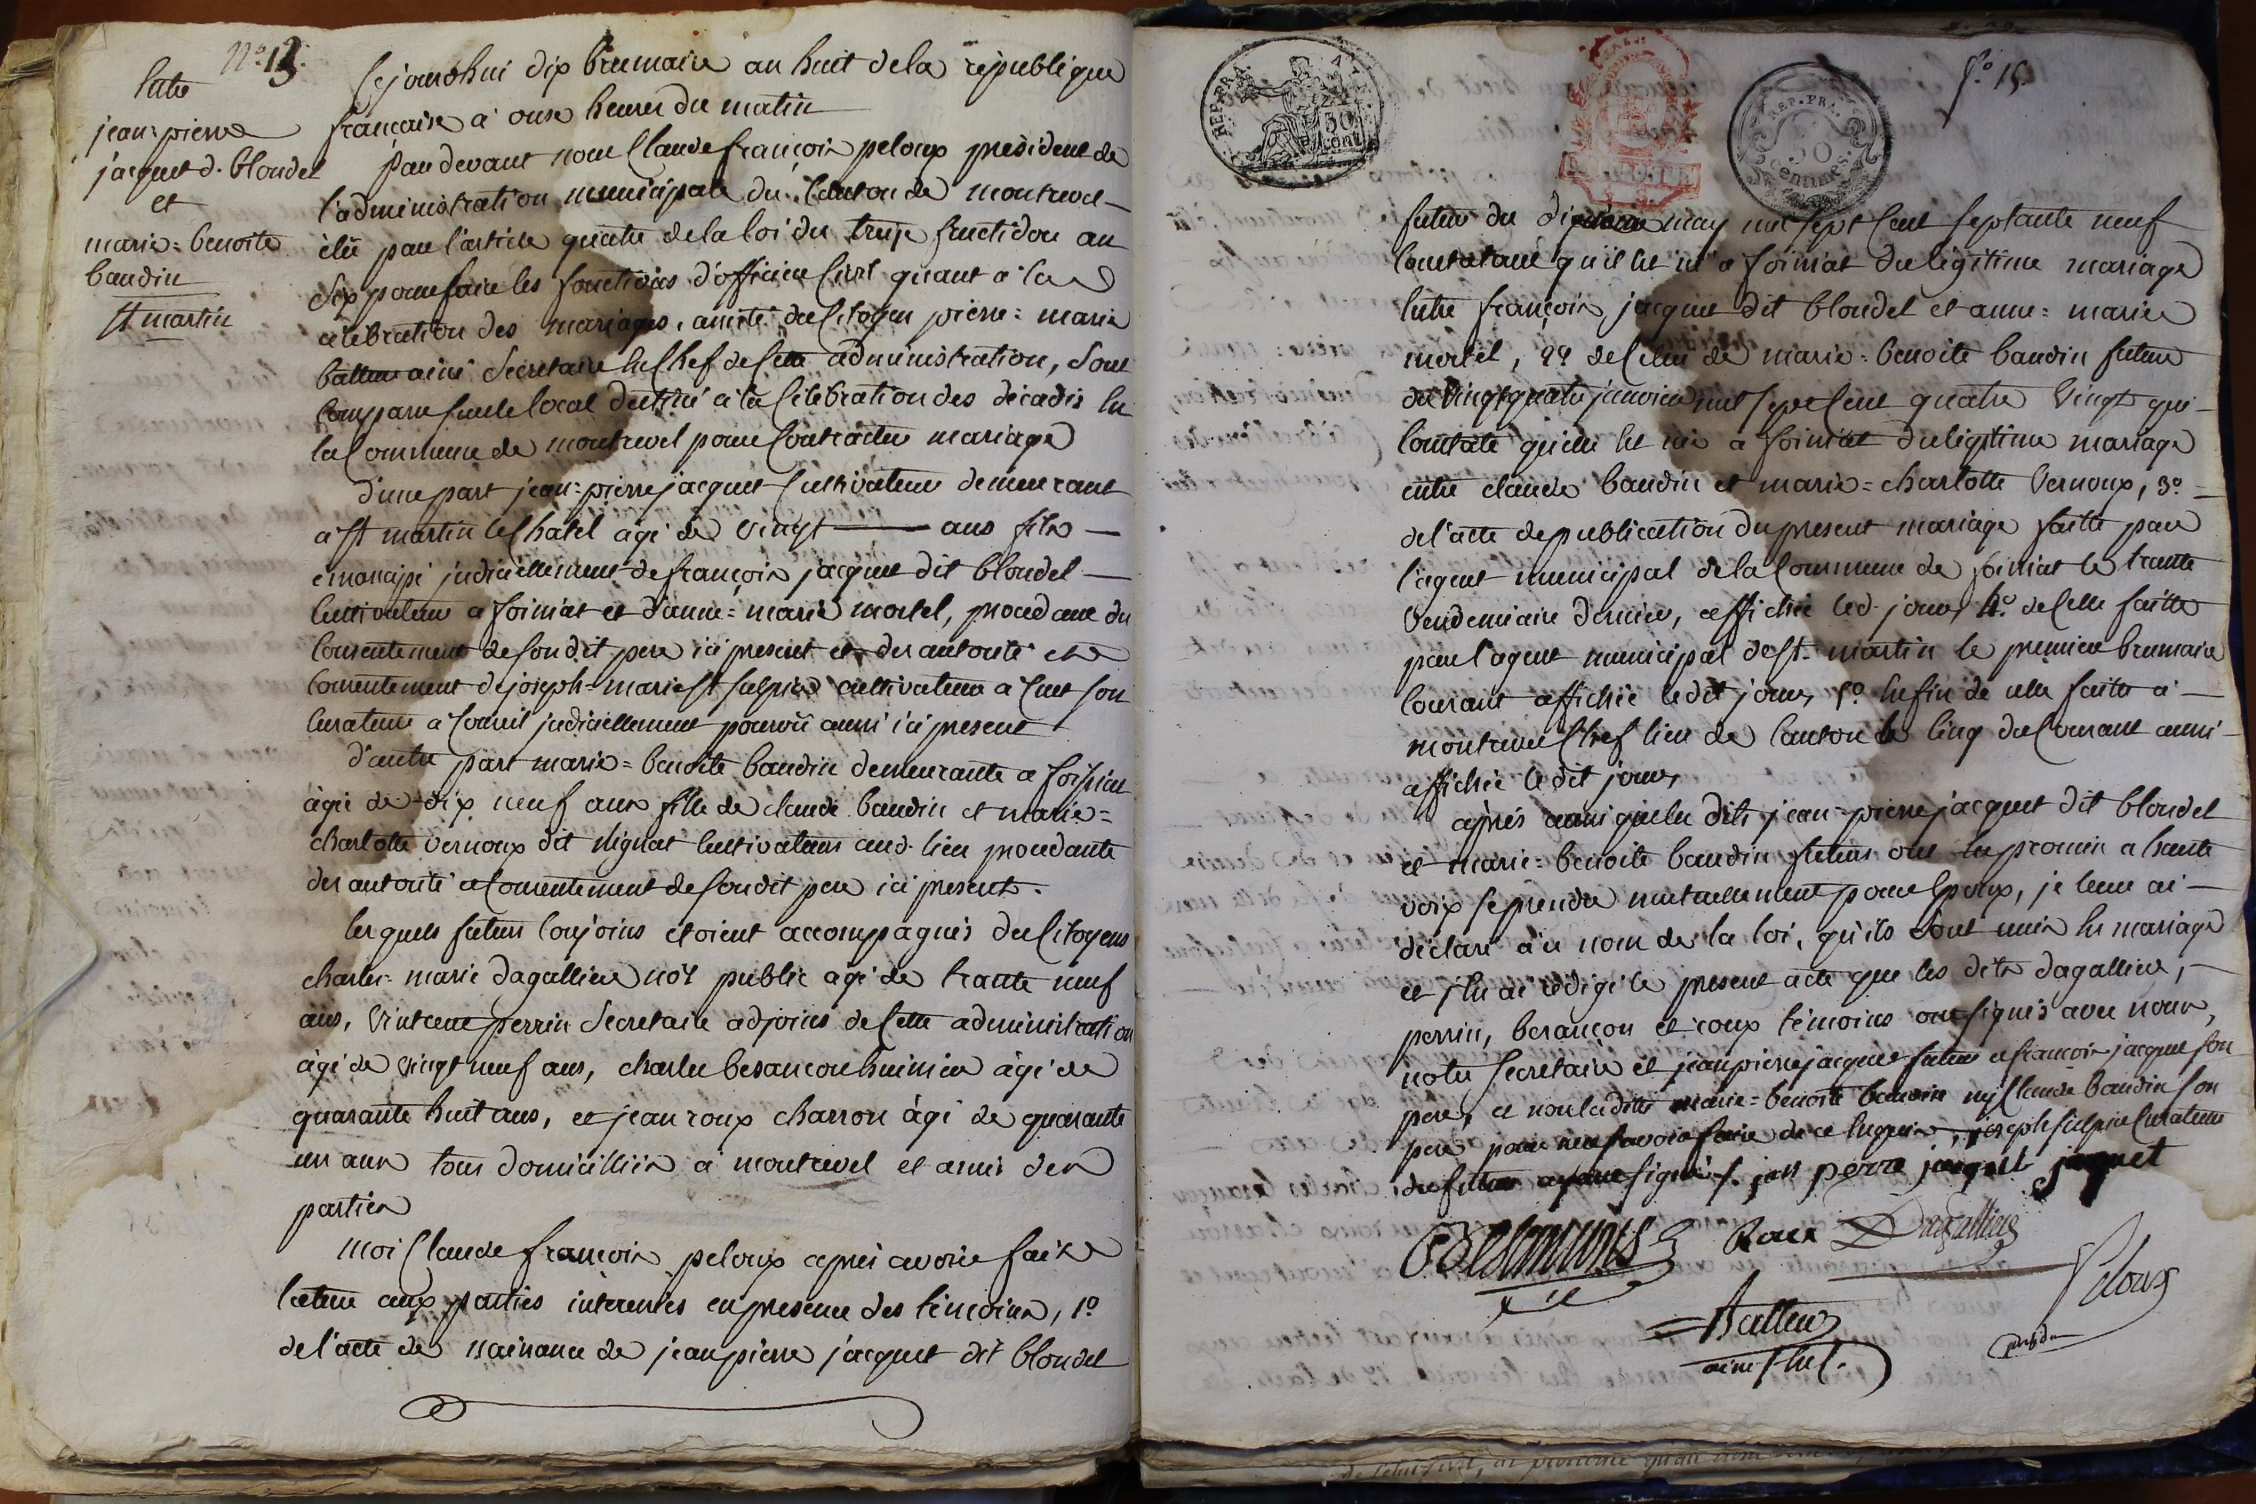 N° 13.
Entre
jean=pierre
jacquet d. blondel
et
marie=benoite
baudin
St martin
Cejourdhui dix brumaire an huit dela république
française a onze heures du matin
Pardevant nous Claude françois peloux président de
l'administration municipale du Canton de montrevel
élu par l'article quatre dela loi du treize fructidor an
Six pour faire les fonctions d'officier Civil quant a la
célébration des mariages, assisté du Citoyen pierre=marie
battur ainé Secretaire en Chef de Cette administration, Sont
Comparu sur le local destiné a la Célébration des décadis en
la Commune de montrevel pour Contracter mariage
d'une part jean=pierre jacquet Cultivateur demeurant
a St martin le Chatel agé de vingt ans fils
emancipé judiciellement de françois jacquet dit blondel
Cultivateur a foissiat et d'anne=marie mortel, procedant du
Consentement de son dit pere ici present et des autorité et
Consentement de joseph=marie St sulpice cultivateur a Cuet son
Curateur a Conseil judiciellement pourvu aussi ici present
d'autre part marie=benoite baudin demeurante a foissiat
agée de dix neuf ans fille de claude baudin et marie=
charlotte vernoux dit nignat Cultivateurs aud. lieu procedante
des autorité et Consentement de son dit pere ici present.
les quels futurs Conjoins étoient accompagnés des Citoyens
charles=marie dagallier not public agé de trante neuf
ans, vintrene perrin Secretaire adjoins de Cette administration
agé de vingt neuf ans, charles besançon huissier agé de
quarante huit ans, et jean roux charron agé de quarante
un ans tous domicilliés a montrevel et amis des
parties
Moi Claude françois peloux apres avoir fait
lecture aux parties interessées en presence des témoins, 1°
de l'acte de naissance de jean pierre jacquet dit blondel
f° 15.
REP. FRA.
50
Cent
REP. FRA.
50
Centimes.
futur du may mil sept Cent septante neuf
Constatant qu'il est né a foissiat du légitime mariage
Entre françois jacquet dit blondel et anne=marie
mortel, 2° de Celui de marie=benoite baudin future
du vingt quatre janvier mil sept Cent quatre vingt qui
Constate qu'elle est née a foissiat du légitime mariage
entre claude baudin et marie=charlotte vernoux, 3°
de l'acte de publication du present mariage faitte par
l'agent municipal de la Commune de foissiat le trante
vendemiaire dernier, affichée led. jour, 4° de Celle faitte
par l'agent municipal de St martin le premier brumaire
Courant affichée ledit jour, 5° Enfin de celle faitte a
montrevel Chef lieu de Canton le Cinq du Courant aussi
affichée le dit jour,
après aussi que les dits jean=pierre jacquet dit blondel
et marie=benoite baudin futurs ont eu promis a haute
voix se prendre mutuellement pour Epoux, je leur ai
déclaré au nom de la loi, qu'ils sont unis En mariage
et j'En ai rédigé le present acte que les dits dagallier,
perrin, besançon et roux témoins ont signés avec nous,
notre Secretaire et jean pierre jacquet futur et françois jacquet son
pere, et non ladite marie=benoite baudin ny Claude baudin son
pere pour ne savoir faire de ce Enquis, joseph sulpice Curateur
du futur ayant signé. jean pierre jacquet jaquet
Besançons Roux Dagallier
Battur
ainé S. en chef.
Peloux
presdn